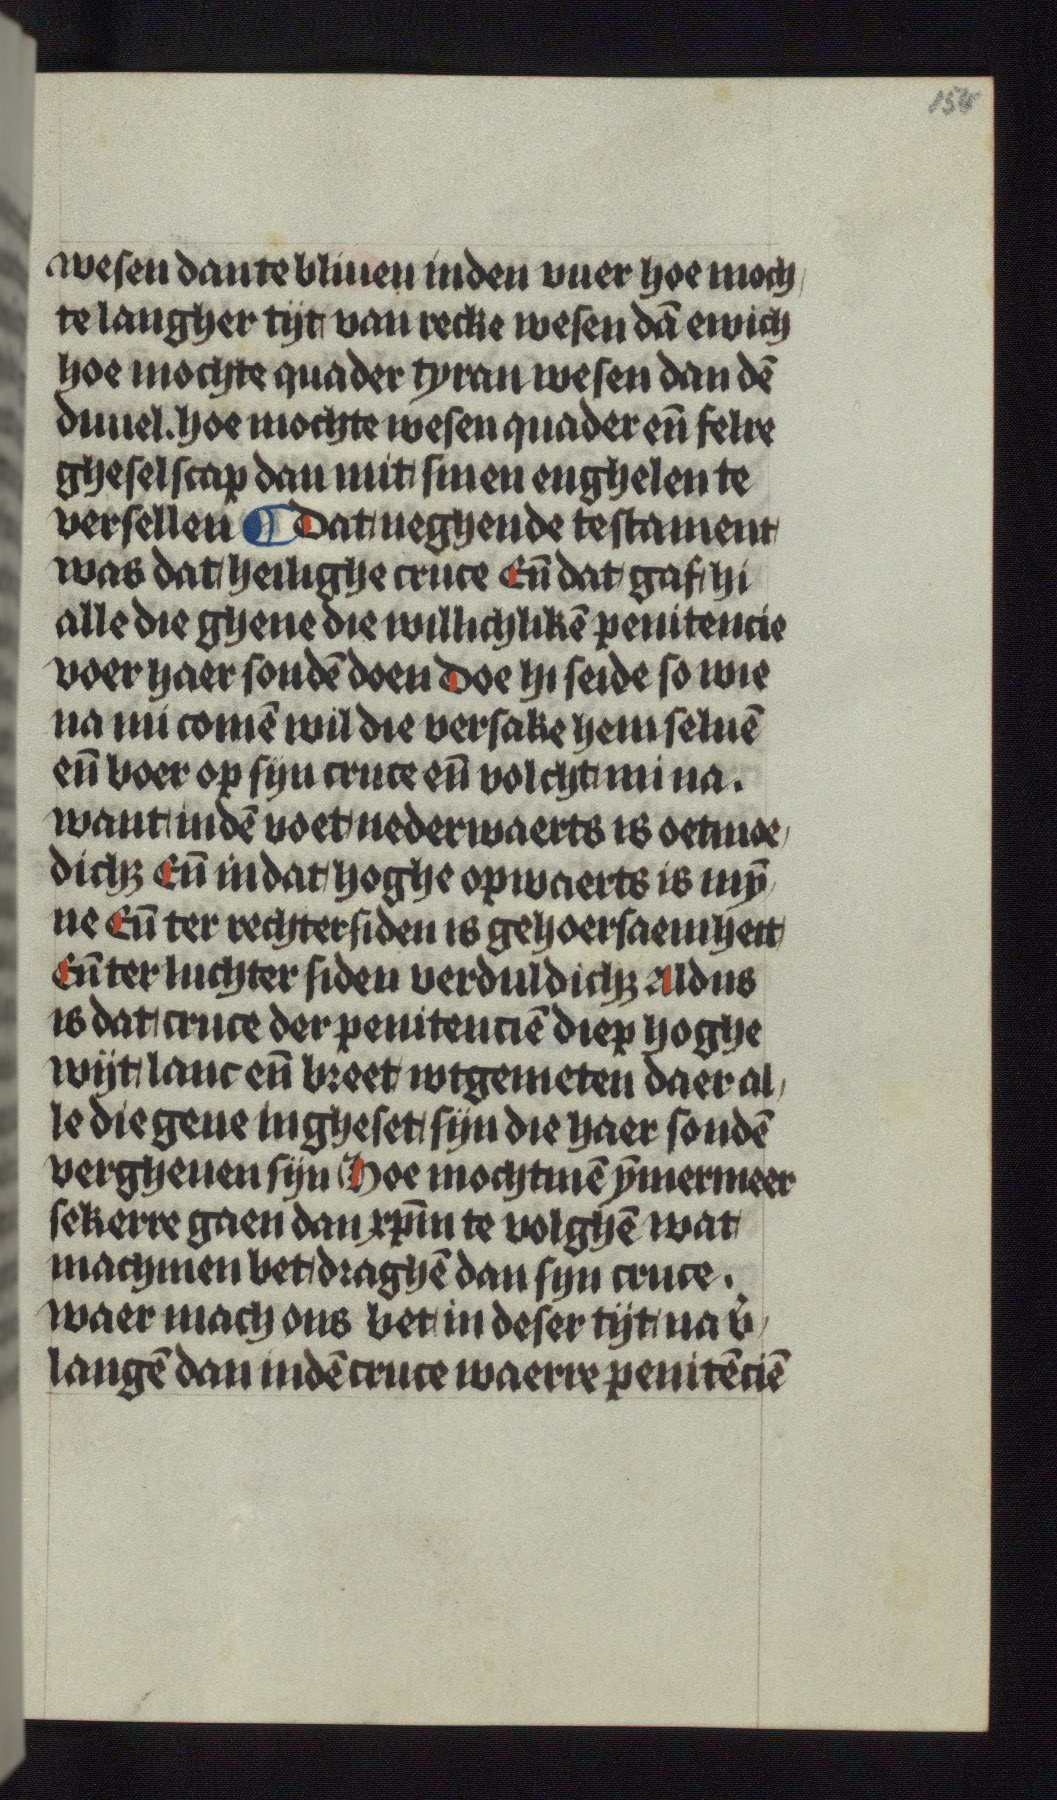 154
wesen dan te bliuen inden vuer hoe moch/
te langher tijt van recke wesen dā ewich
hoe mochte quader tyran wesen dan dē
duuel. hoe mochte wesen quader eñ felre
gheselscap dan mit sinen enghelen te
versellen ¶ Dat neghende testament
was dat heilighe cruce Eñ dat gaf hi
alle die ghene die willichlikē penitencie
voer haer sondē doen Doe hi seide so wie
na mi comē wil die versake hem seluē
eñ boer op sijn cruce eñ volcht mi na.
want indē voet nederwaerts is oetmoe/
dichȝ Eñ in dat hoghe opwaerts is mȳ/
ne Eñ ter rechter siden is gehoersaemheit
Eñ ter luchter siden verduldichȝ Aldus
is dat cruce der penitenciē diep hoghe
wijt lanc eñ breet wtgemeten daer al/
le die gene in gheset sijn die haer sondē
vergheuen sijn Hoe mochtmē ȳmermeer
sekerre gaen dan xp̄m te volghē wat
machmen bet draghē dan sijn cruce.
waer mach ons bet in deser tijt na v̄/
langē dan indē cruce waerre penitēciē